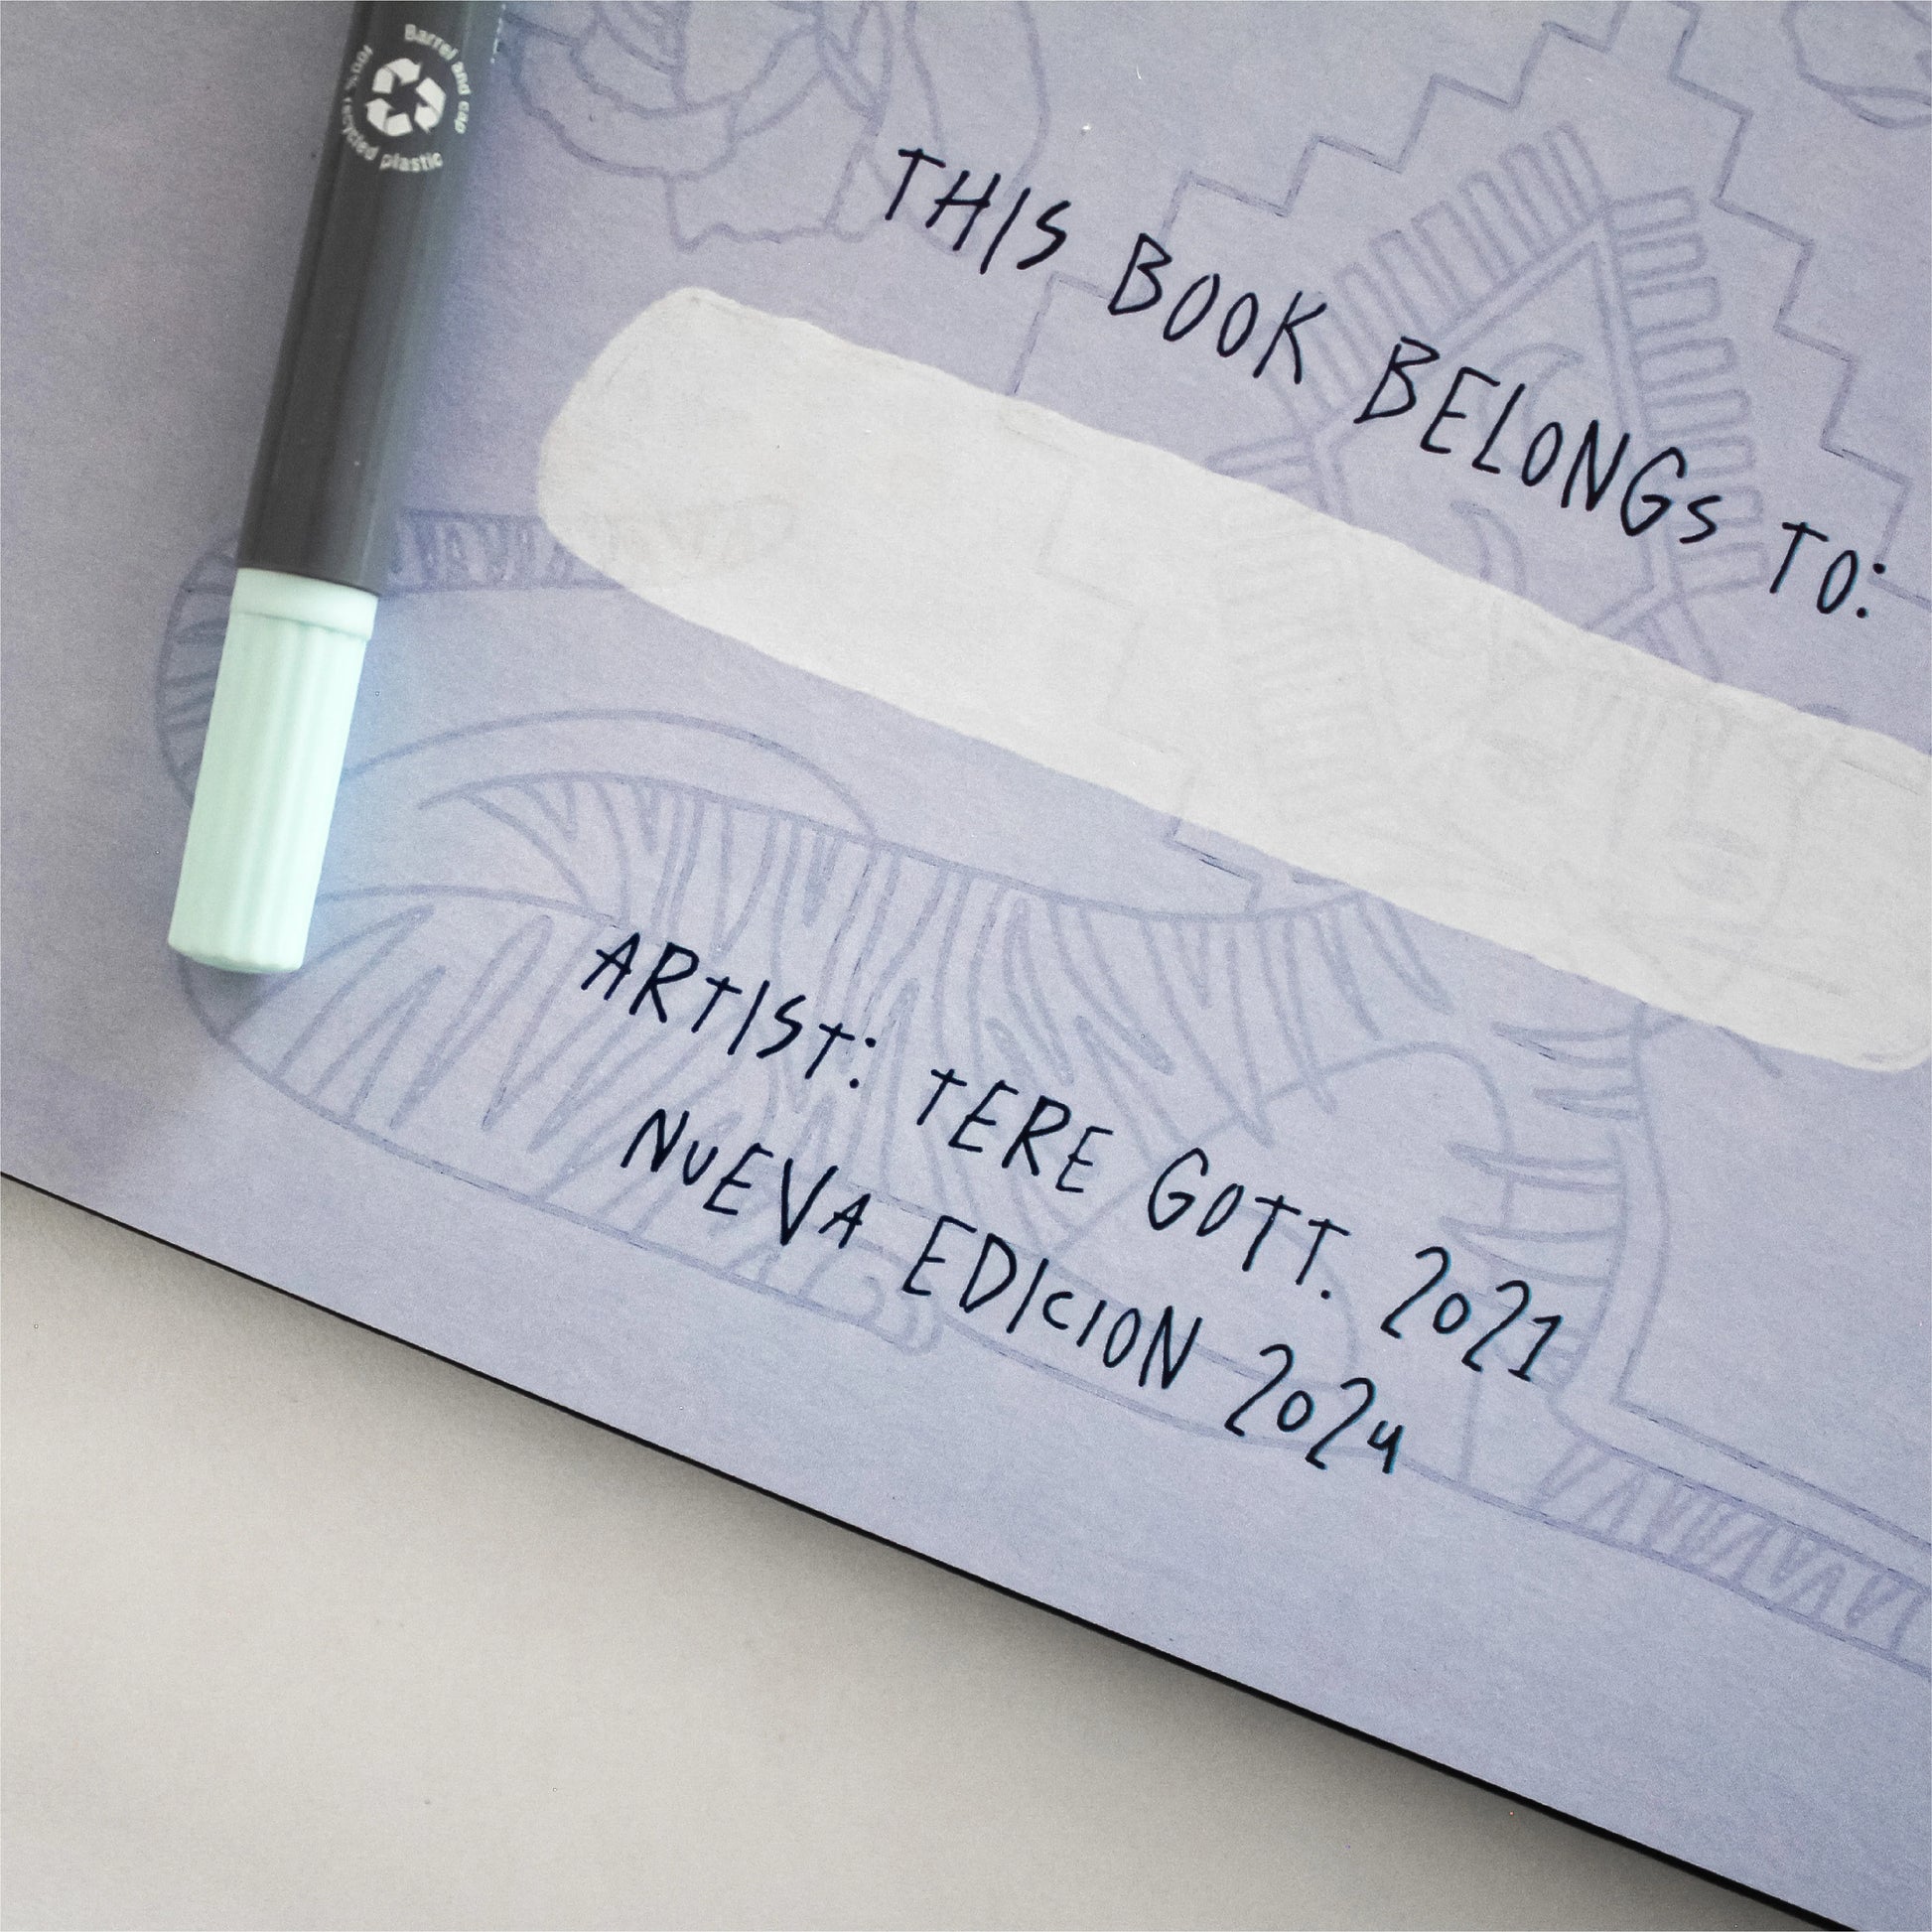 Barrel and cap
100% recycled plastic
THIS BOOK BELONGS TO:
ARTIST: TERE GOTT. 2021
NUEVA EDICION 2024